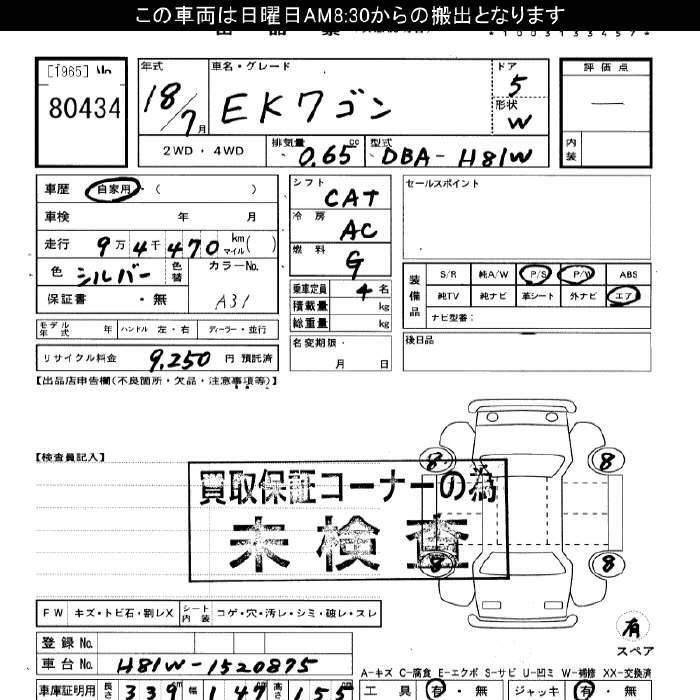 この車両は日曜日AM8:30からの搬出となります
*1003133457*
[1965]
80434
年式
18/7月
車名・グレード
EKワゴン
ドア
5
形状
W
評価点
—
内装
2WD・4WD
排気量
0.65 cc
型式
DBA-H81W
車歴 自家用 ( )
車検 年 月
走行 9万4千470 km マイル ( )
色 シルバー 色替
カラーNo.
A31
保証書 ・無
シフト
CAT
冷房
AC
燃料
G
乗車定員 4名
積載量 kg
総重量 kg
セールスポイント
装備品
S/R 純A/W P/S P/W ABS
純TV 純ナビ 革シート 外ナビ エア
ナビ型番:
モデル年式 年 ハンドル 左・右 ディーラー・並行
リサイクル料金 9,250 円 預託済
名変期限・
月 日
後日品
【出品店申告欄(不良箇所・欠品・注意事項等)】
【検査員記入】
買取保証コーナーの為
未検査
8
8
8
8
FW キズ・トビ石・割レX シート内装 コゲ・穴・汚レ・シミ・破レ・スレ
有
スペア
登録No.
車台No. H81W-1520875
A-キズ C-腐食 E-エクボ S-サビ U-凹ミ W-補修 XX-交換済
車庫証明用 長さ 339 幅 147 高さ 155
工具 有・無 ジャッキ 有・無